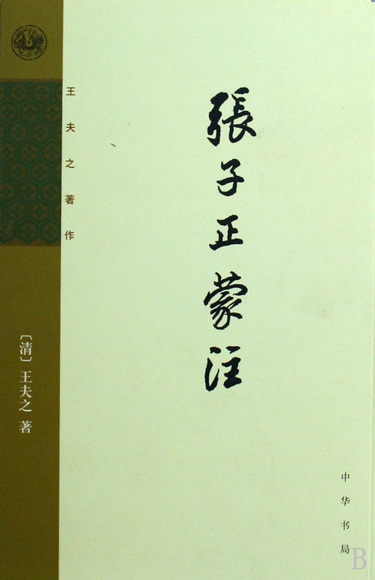 張子正蒙注
王夫之著作
〔清〕王夫之 著
中华书局
B